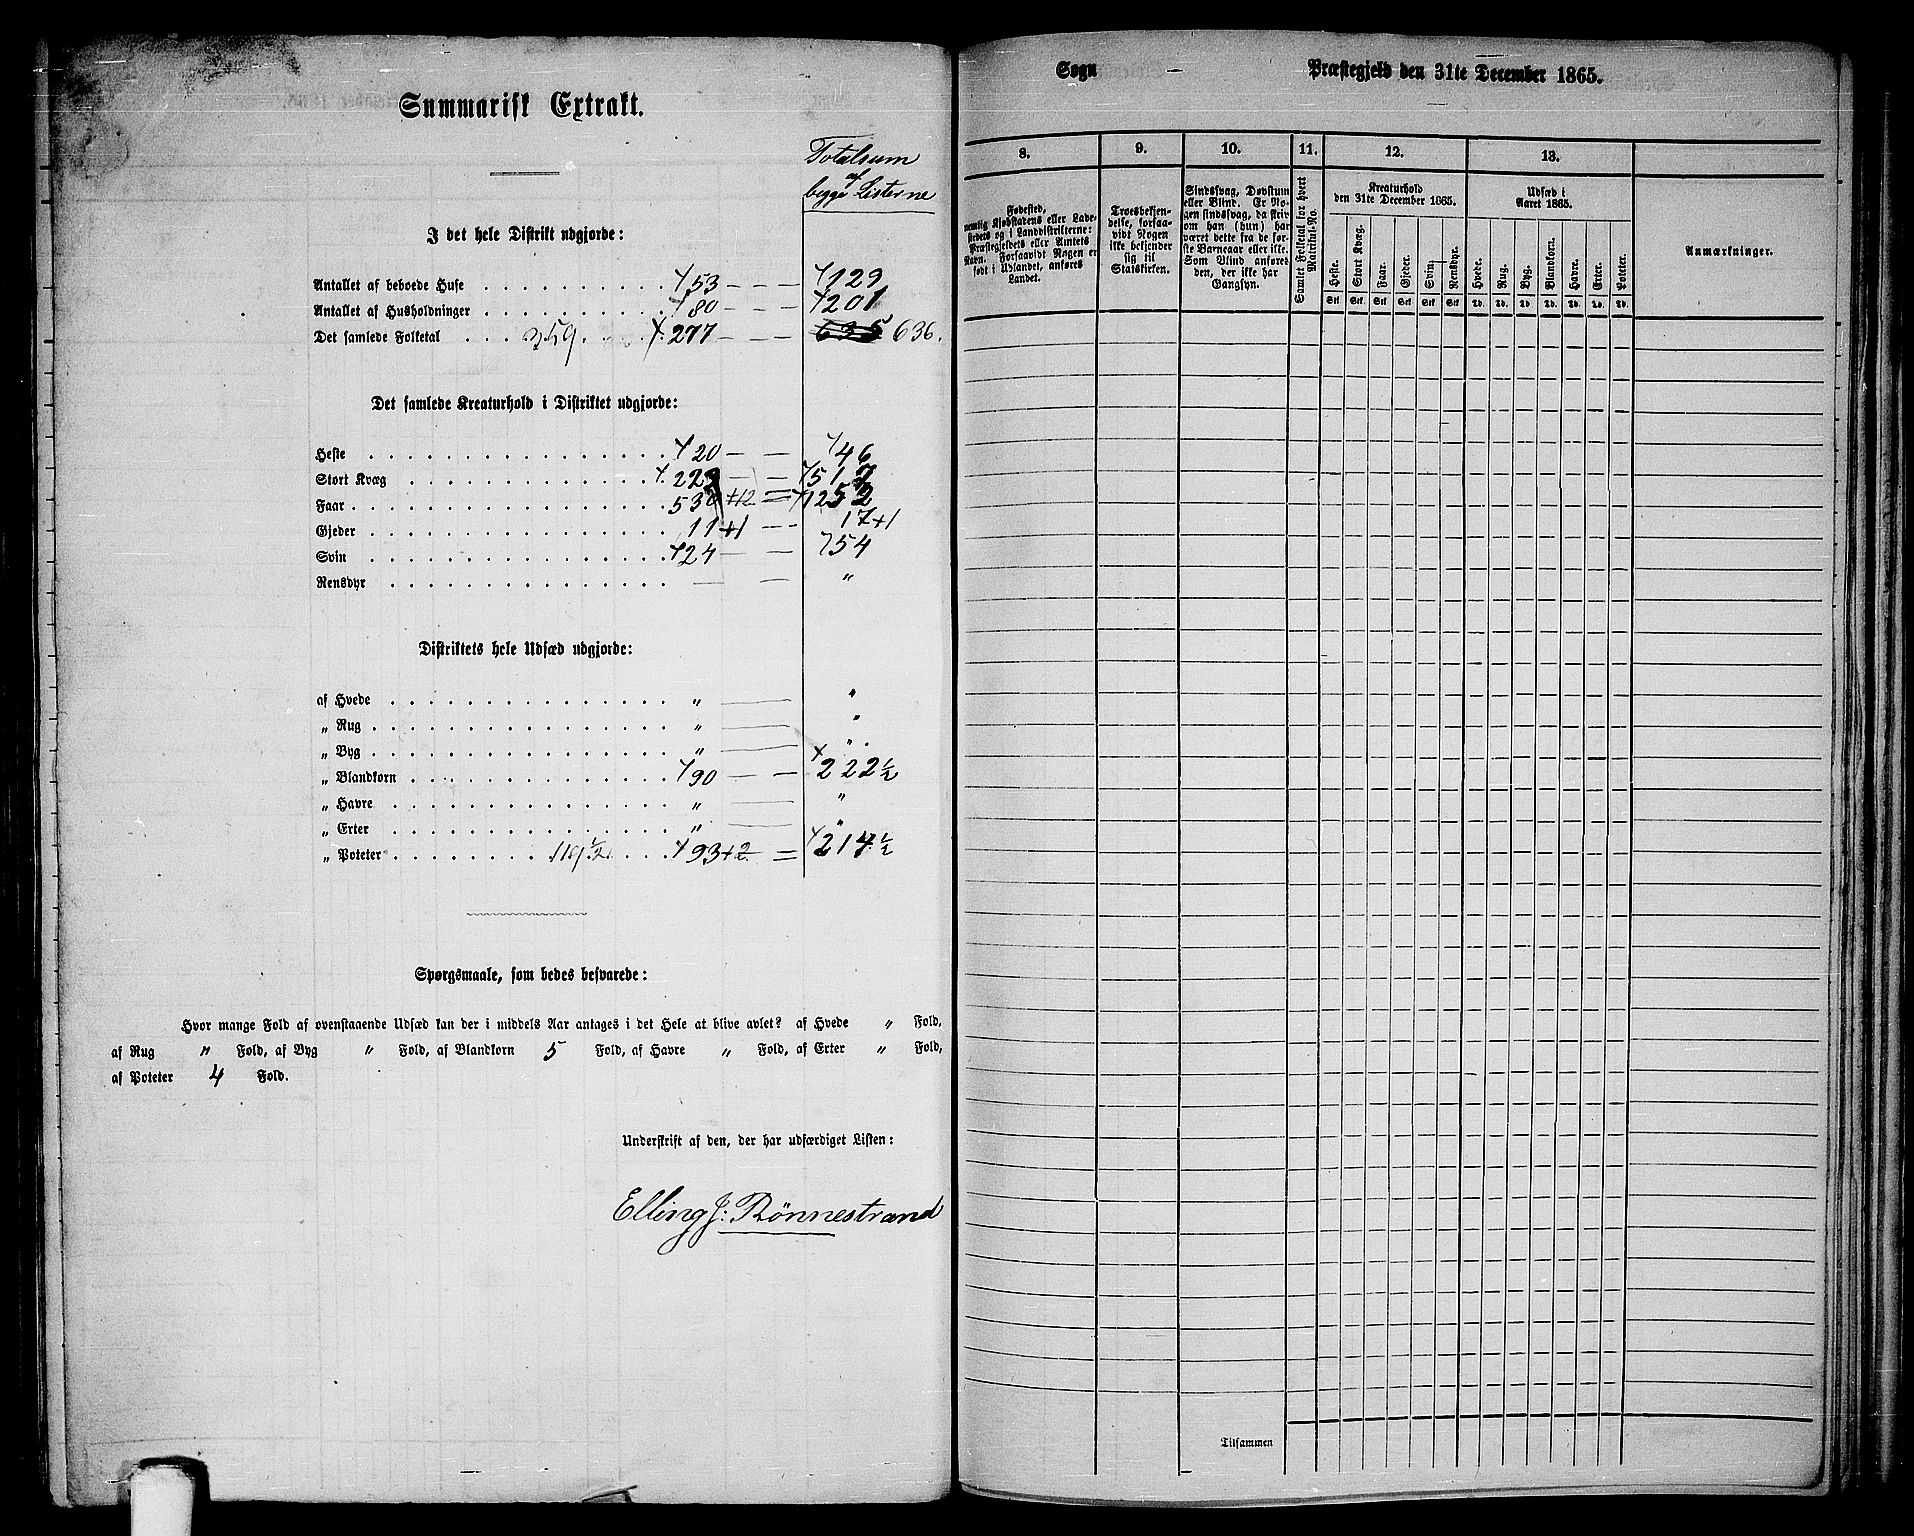 Summarisk Extrakt.
Totalsum
af
begge Listerne
I det hele Distrikt udgjorde:
Antallet af beboede Huse 53 — — — 129
Antallet af Husholdninger 80 — — 201
Det samlede Folketal 359 277 — — — 635 636.
Det samlede Kreaturhold i Distriktet udgjorde:
Heste 20 — — 46
Stort Kvæg 229 — — 517
Faar 530 +12 = 1252
Gjeder 11+1 — — 17+1
Svin 24 — — 54
Rensdyr — — „
Distriktets hele Udsæd udgjorde:
af Hvede „ — „
„ Rug „ — „
„ Byg „ — „
„ Blandkorn 90 — — 222½
„ Havre „ — „
„ Erter „ — „
„ Poteter 119½ 93+2 = 214½
Spørgsmaale, som bedes besvarede:
Hvor mange Fold af ovenstaaende Udsæd kan der i middels Aar antages i det Hele at blive avlet? af Hvede „ Fold,
af Rug „ Fold, af Byg „ Fold, af Blandkorn 5 Fold, af Havre „ Fold, af Erter „ Fold,
af Poteter 4 Fold.
Underskrift af den, der har udfærdiget Listen:
Elling J: Rönnestrand
Sogn — Præstegjeld den 31te December 1865.
8.
9.
10.
11.
12.
13.
Fødested,
nemlig Kjøbstadens eller Lade-
stedets og i Landdistrikterne:
Præstegjeldets eller Amtets
Navn. Forsaavidt Nogen er
født i Udlandet, anføres
Landet.
Troesbekjen-
delse, forsaa-
vidt Nogen
ikke bekjender
sig til
Statskirken.
Sindssvag, Døvstum
eller Blind. Er No-
gen sindssvag, da skriv
om han (hun) har
været dette fra de før-
ste Barneaar eller ikke.
Som Blind anføres
den, der ikke har
Gangsyn.
Samlet Folketal for hvert
Matrikul-No.
Kreaturhold
den 31te December 1865.
Heste.
Stort Kvæg.
Faar.
Gjeder.
Svin.
Rensdyr.
Stk Stk Stk Stk Stk Stk
Udsæd i
Aaret 1865.
Hvede.
Rug.
Byg.
Blandkorn.
Havre.
Erter.
Poteter.
Td. Td. Td. Td. Td. Td. Td.
Anmærkninger.
Tilsammen